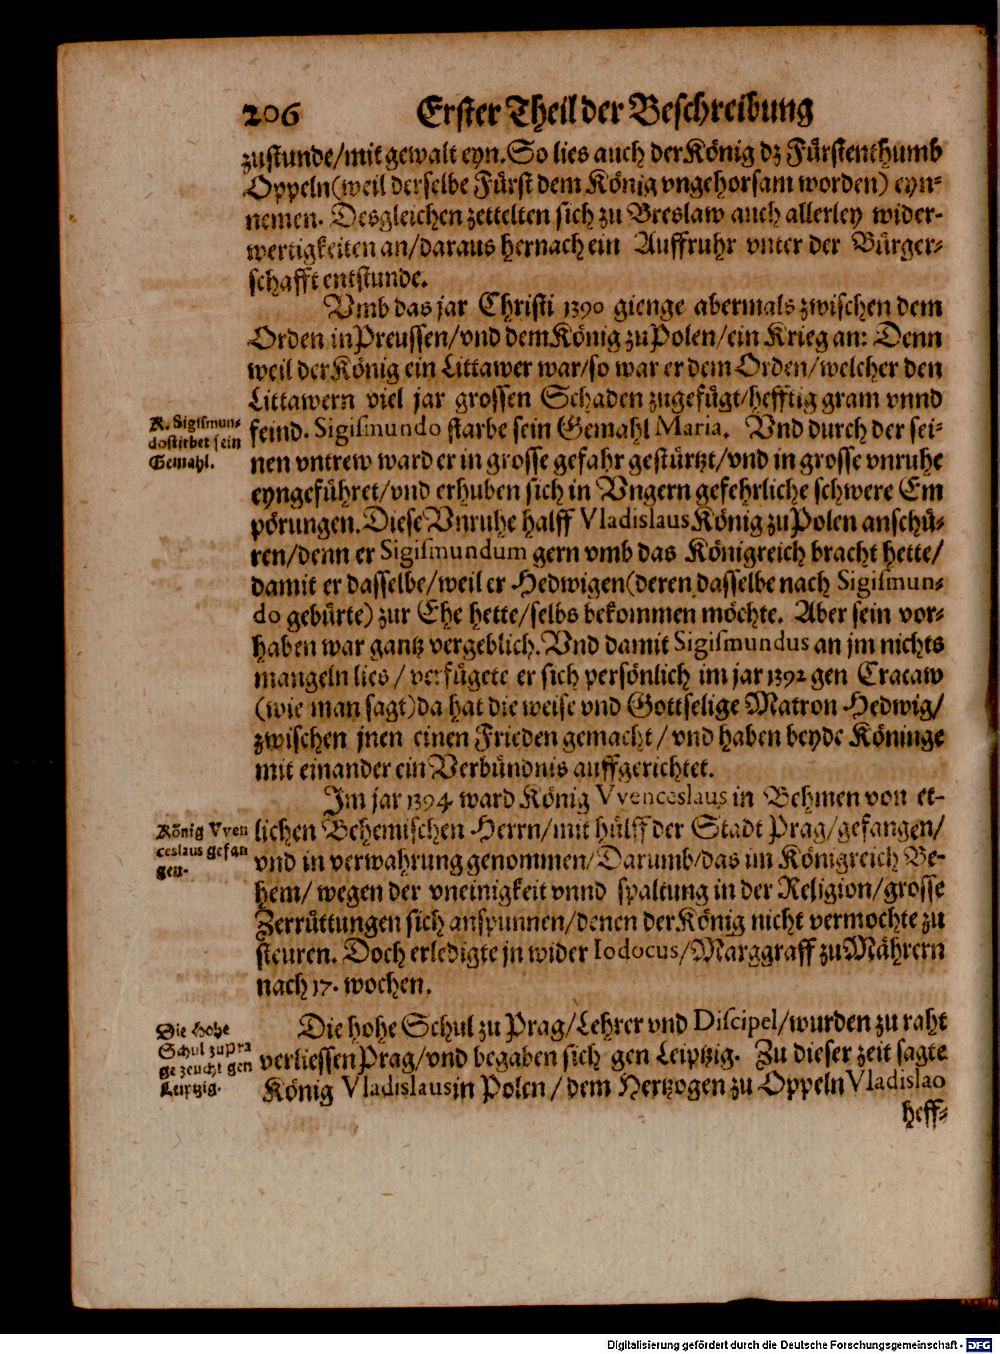 206 Erster Theil der Beschreibung
zustunde/mit gewalt eyn. So lies auch der König dz Fürstenthumb
Oppeln (weil derselbe Fürst dem König vngehorsam worden) eyn-
nemen. Desgleichen zettelten sich zu Breslaw auch allerley wider-
wertigkeiten an/daraus hernach ein Auffruhr vnter der Bürger-
schafft entstunde.
Vmb das jar Christi 1390 gienge abermals zwischen dem
Orden in Preussen/vnd dem König zu Polen/ein Krieg an: Denn
weil der König ein Littawer war/so war er dem Orden/welcher den
Littawern viel jar grossen Schaden zugefügt/hefftig gram vnnd
K. Sigismun-
do stirbet sein
Gemahl.
feind. Sigismundo starbe sein Gemahl Maria. Vnd durch der sei-
nen vntrew ward er in grosse gefahr gestürtzt/vnd in grosse vnruhe
eyngeführet/vnd erhuben sich in Vngern gefehrliche schwere Em
pörungen. Diese Vnruhe halff Vladislaus König zu Polen anschü-
ren/denn er Sigismundum gern vmb das Königreich bracht hette/
damit er dasselbe/weil er Hedwigen (deren dasselbe nach Sigismun-
do gebürte) zur Ehe hette/selbs bekommen möchte. Aber sein vor-
haben war gantz vergeblich. Vnd damit Sigismundus an jm nichts
mangeln lies/verfügete er sich persönlich im jar 1392 gen Cracaw
(wie man sagt) da hat die weise vnd Gottselige Matron Hedwig/
zwischen jnen einen Frieden gemacht/vnd haben beyde Köninge
mit einander ein Verbündnis auffgerichtet.
Im jar 1394 ward König Vvenceslaus in Behmen von et-
König Vven
ceslaus gefan
gen.
lichen Behemischen Herrn/mit hülff der Stadt Prag/gefangen/
vnd in verwahrung genommen/Darumb/das im Königreich Be-
hem/wegen der vneinigkeit vnnd spaltung in der Religion/grosse
Zerrüttungen sich anspunnen/denen der König nicht vermochte zu
steuren. Doch erledigte jn wider Iodocus/Marggraff zu Mährern
nach 17. wochen.
Die Hohe
Schul zu Pra
ge zeucht gen
Leiptzig.
Die hohe Schul zu Prag/Lehrer vnd Discipel/wurden zu raht
verliessen Prag/vnd begaben sich gen Leiptzig. Zu dieser zeit sagte
König Vladislaus in Polen/dem Hertzogen zu Oppeln Vladislao
heff-
Digitalisierung gefördert durch die Deutsche Forschungsgemeinschaft - DFG